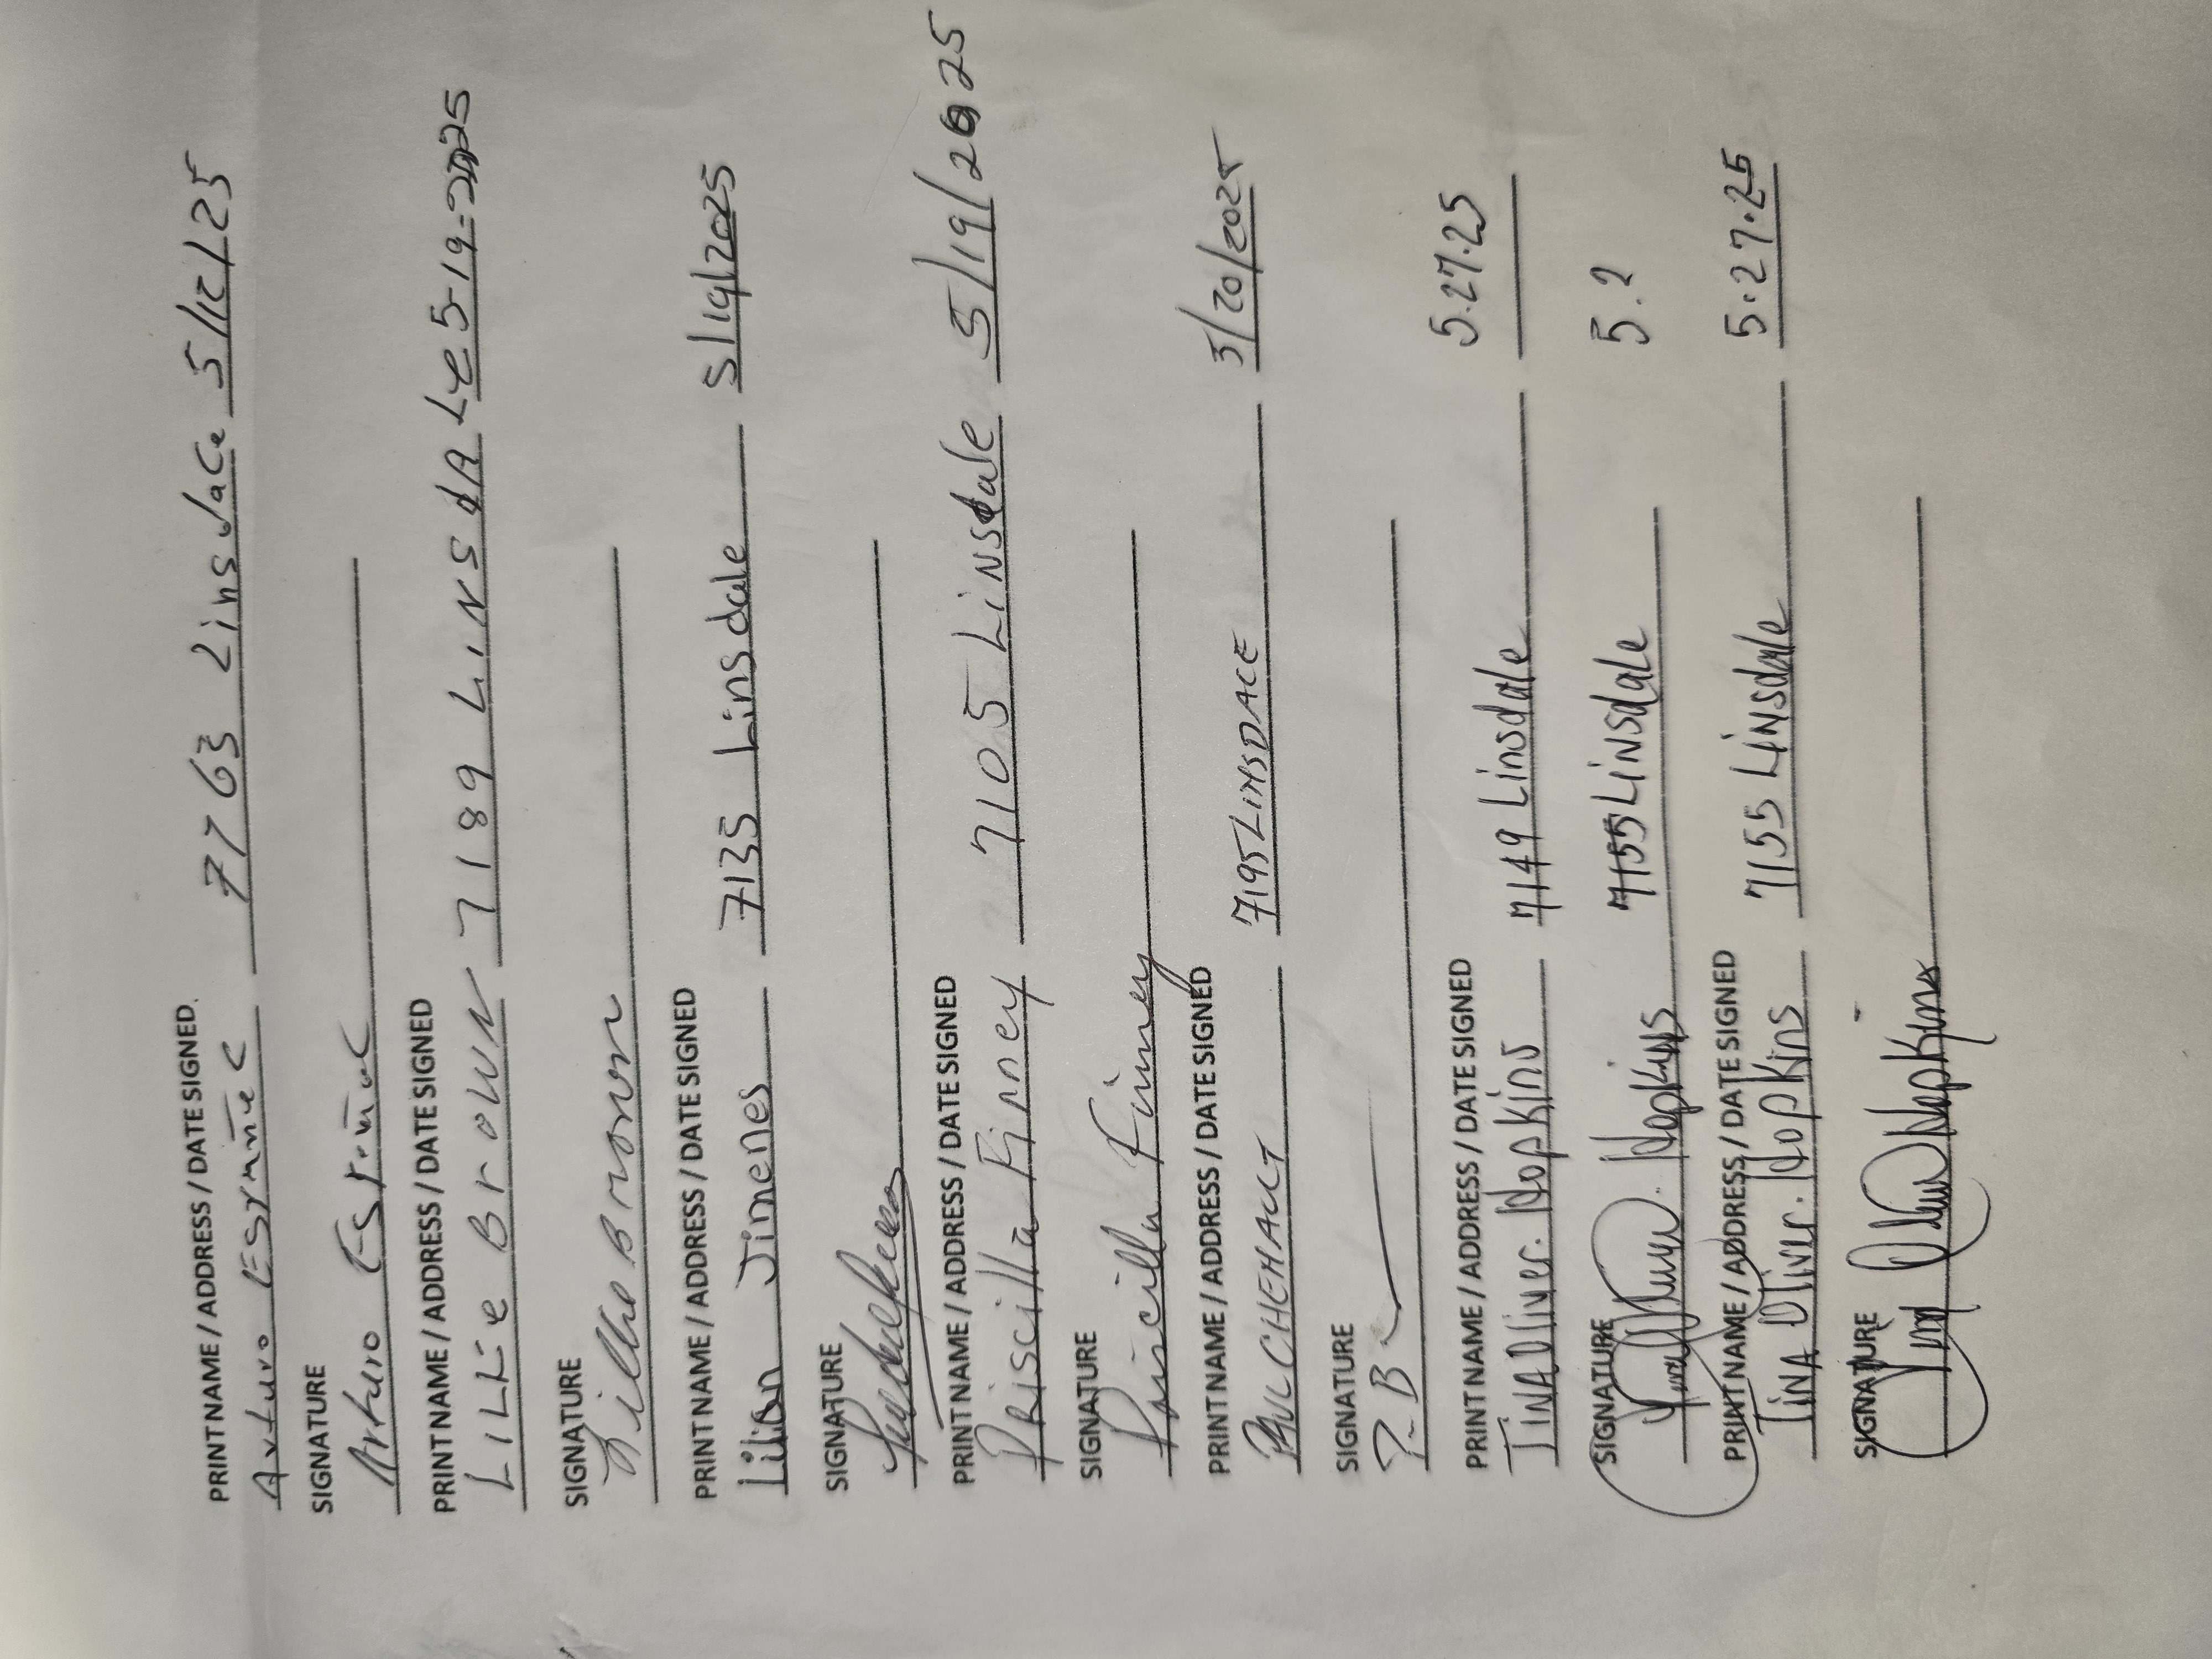 PRINT NAME / ADDRESS / DATE SIGNED
Arturo 7763 Linsdale 5/12/25
SIGNATURE
Arturo
PRINT NAME / ADDRESS / DATE SIGNED
LiLLie Brown 7189 LiNsdALe 5-19-2025
SIGNATURE
Lillie Brown
PRINT NAME / ADDRESS / DATE SIGNED
Lilian Jimenes 7135 Linsdale 5/19/2025
SIGNATURE
PRINT NAME / ADDRESS / DATE SIGNED
Priscilla Finney 7105 LiNsdale 5/19/2025
SIGNATURE
Priscilla Finney
PRINT NAME / ADDRESS / DATE SIGNED
7195 LINSDALE 3/20/2025
SIGNATURE
P.B
PRINT NAME / ADDRESS / DATE SIGNED
TINA Oliver. Hopkins 7149 Linsdale 5.27.25
SIGNATURE
Hopkins 7155 LiNsdale 5.2
PRINT NAME / ADDRESS / DATE SIGNED
TiNA Oliver. Hopkins 7155 LiNsdale 5.27.25
SIGNATURE
Tina Oliver Hopkins